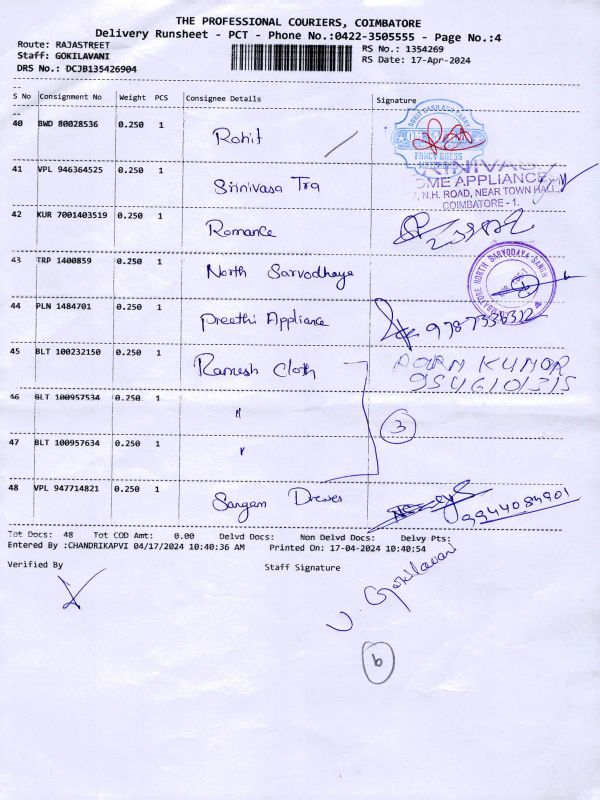 THE PROFESSIONAL COURIERS, COIMBATORE
Delivery Runsheet - PCT - Phone No.:0422-3505555 - Page No.:4
Route: RAJASTREET
RS No.: 1354269
Staff: GOKILAVANI
RS Date: 17-Apr-2024
DRS No.: DCJB135426904
S No Consignment No Weight PCS Consignee Details Signature
40 BWD 80028536 0.250 1 Rohit
FANCY DRESS
41 VPL 946364525 0.250 1 Srinivasa Tra
HOME APPLIANCES
N.H. ROAD, NEAR TOWN HALL,
COIMBATORE - 1.
42 KUR 7001403519 0.250 1 Romance
43 TRP 1400859 0.250 1 North Sarvodhaya
COIMBATORE NORTH SARVODAYA SANGH
44 PLN 1484701 0.250 1 Preethi Appliance
9787338312
45 BLT 100232150 0.250 1 Ramesh Cloth
KUMOR
46 BLT 100957534 0.250 1 "
3
47 BLT 100957634 0.250 1 "
48 VPL 947714821 0.250 1 Sangam Dresses
9944084901
Tot Docs: 48 Tot COD Amt: 0.00 Delvd Docs: Non Delvd Docs: Delvy Pts:
Entered By :CHANDRIKAPVI 04/17/2024 10:40:36 AM Printed On: 17-04-2024 10:40:54
Verified By Staff Signature
V. Gokilavani
6